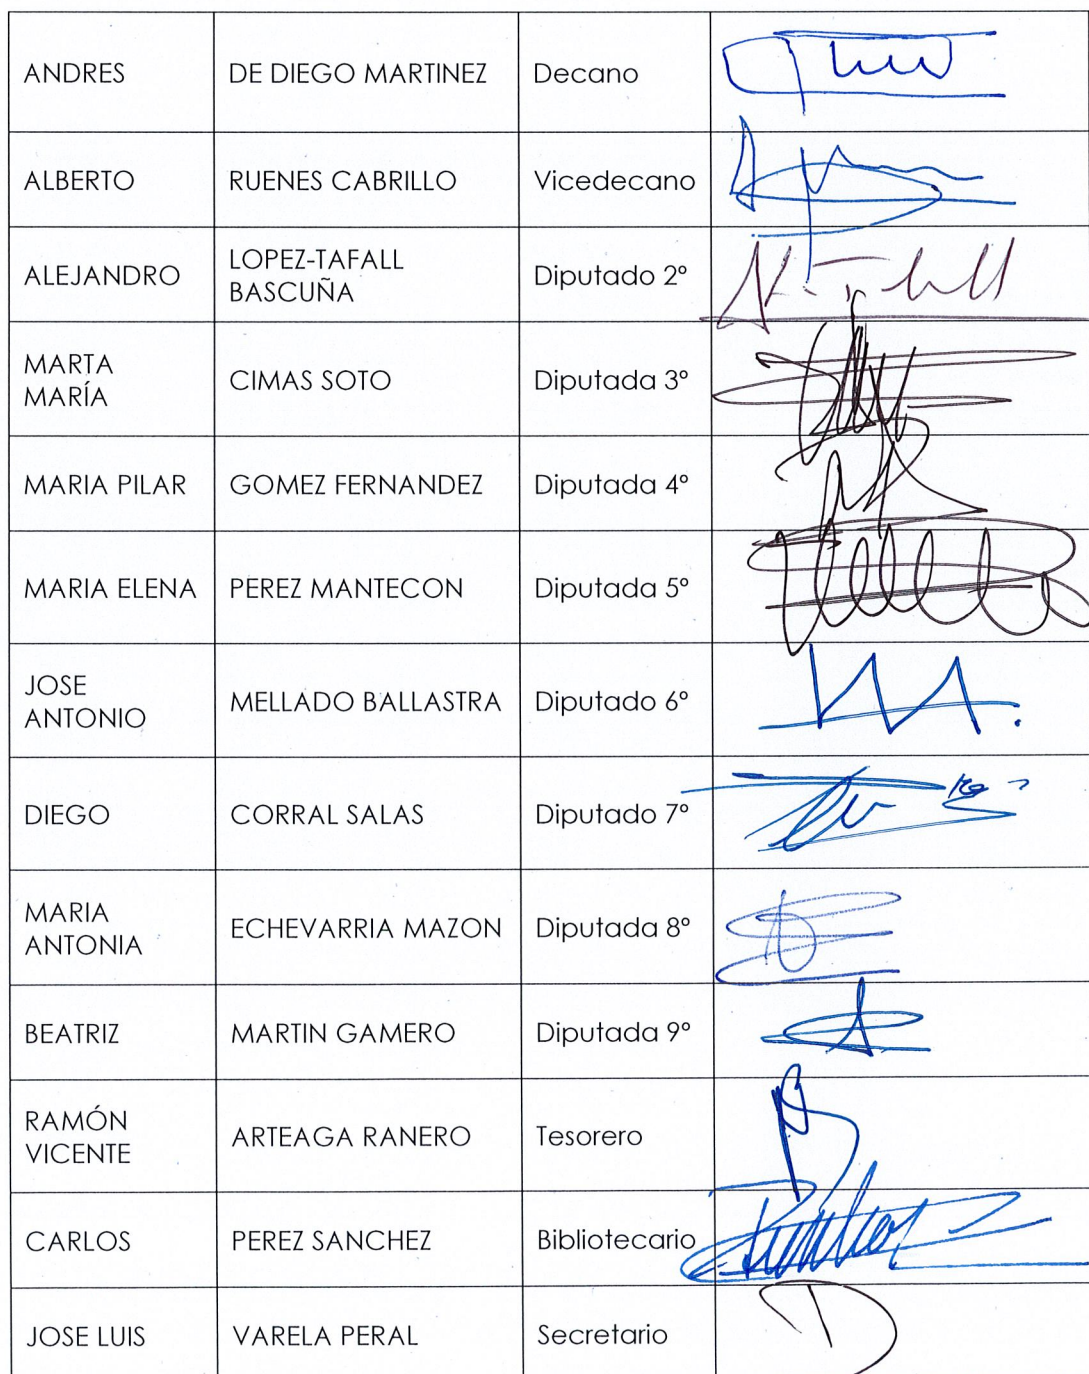 ANDRES DE DIEGO MARTINEZ Decano
ALBERTO RUENES CABRILLO Vicedecano
ALEJANDRO LOPEZ-TAFALL BASCUÑA Diputado 2º
MARTA MARÍA CIMAS SOTO Diputada 3º
MARIA PILAR GOMEZ FERNANDEZ Diputada 4º
MARIA ELENA PEREZ MANTECON Diputada 5º
JOSE ANTONIO MELLADO BALLASTRA Diputado 6º
DIEGO CORRAL SALAS Diputado 7º
MARIA ANTONIA ECHEVARRIA MAZON Diputada 8º
BEATRIZ MARTIN GAMERO Diputada 9º
RAMÓN VICENTE ARTEAGA RANERO Tesorero
CARLOS PEREZ SANCHEZ Bibliotecario
JOSE LUIS VARELA PERAL Secretario